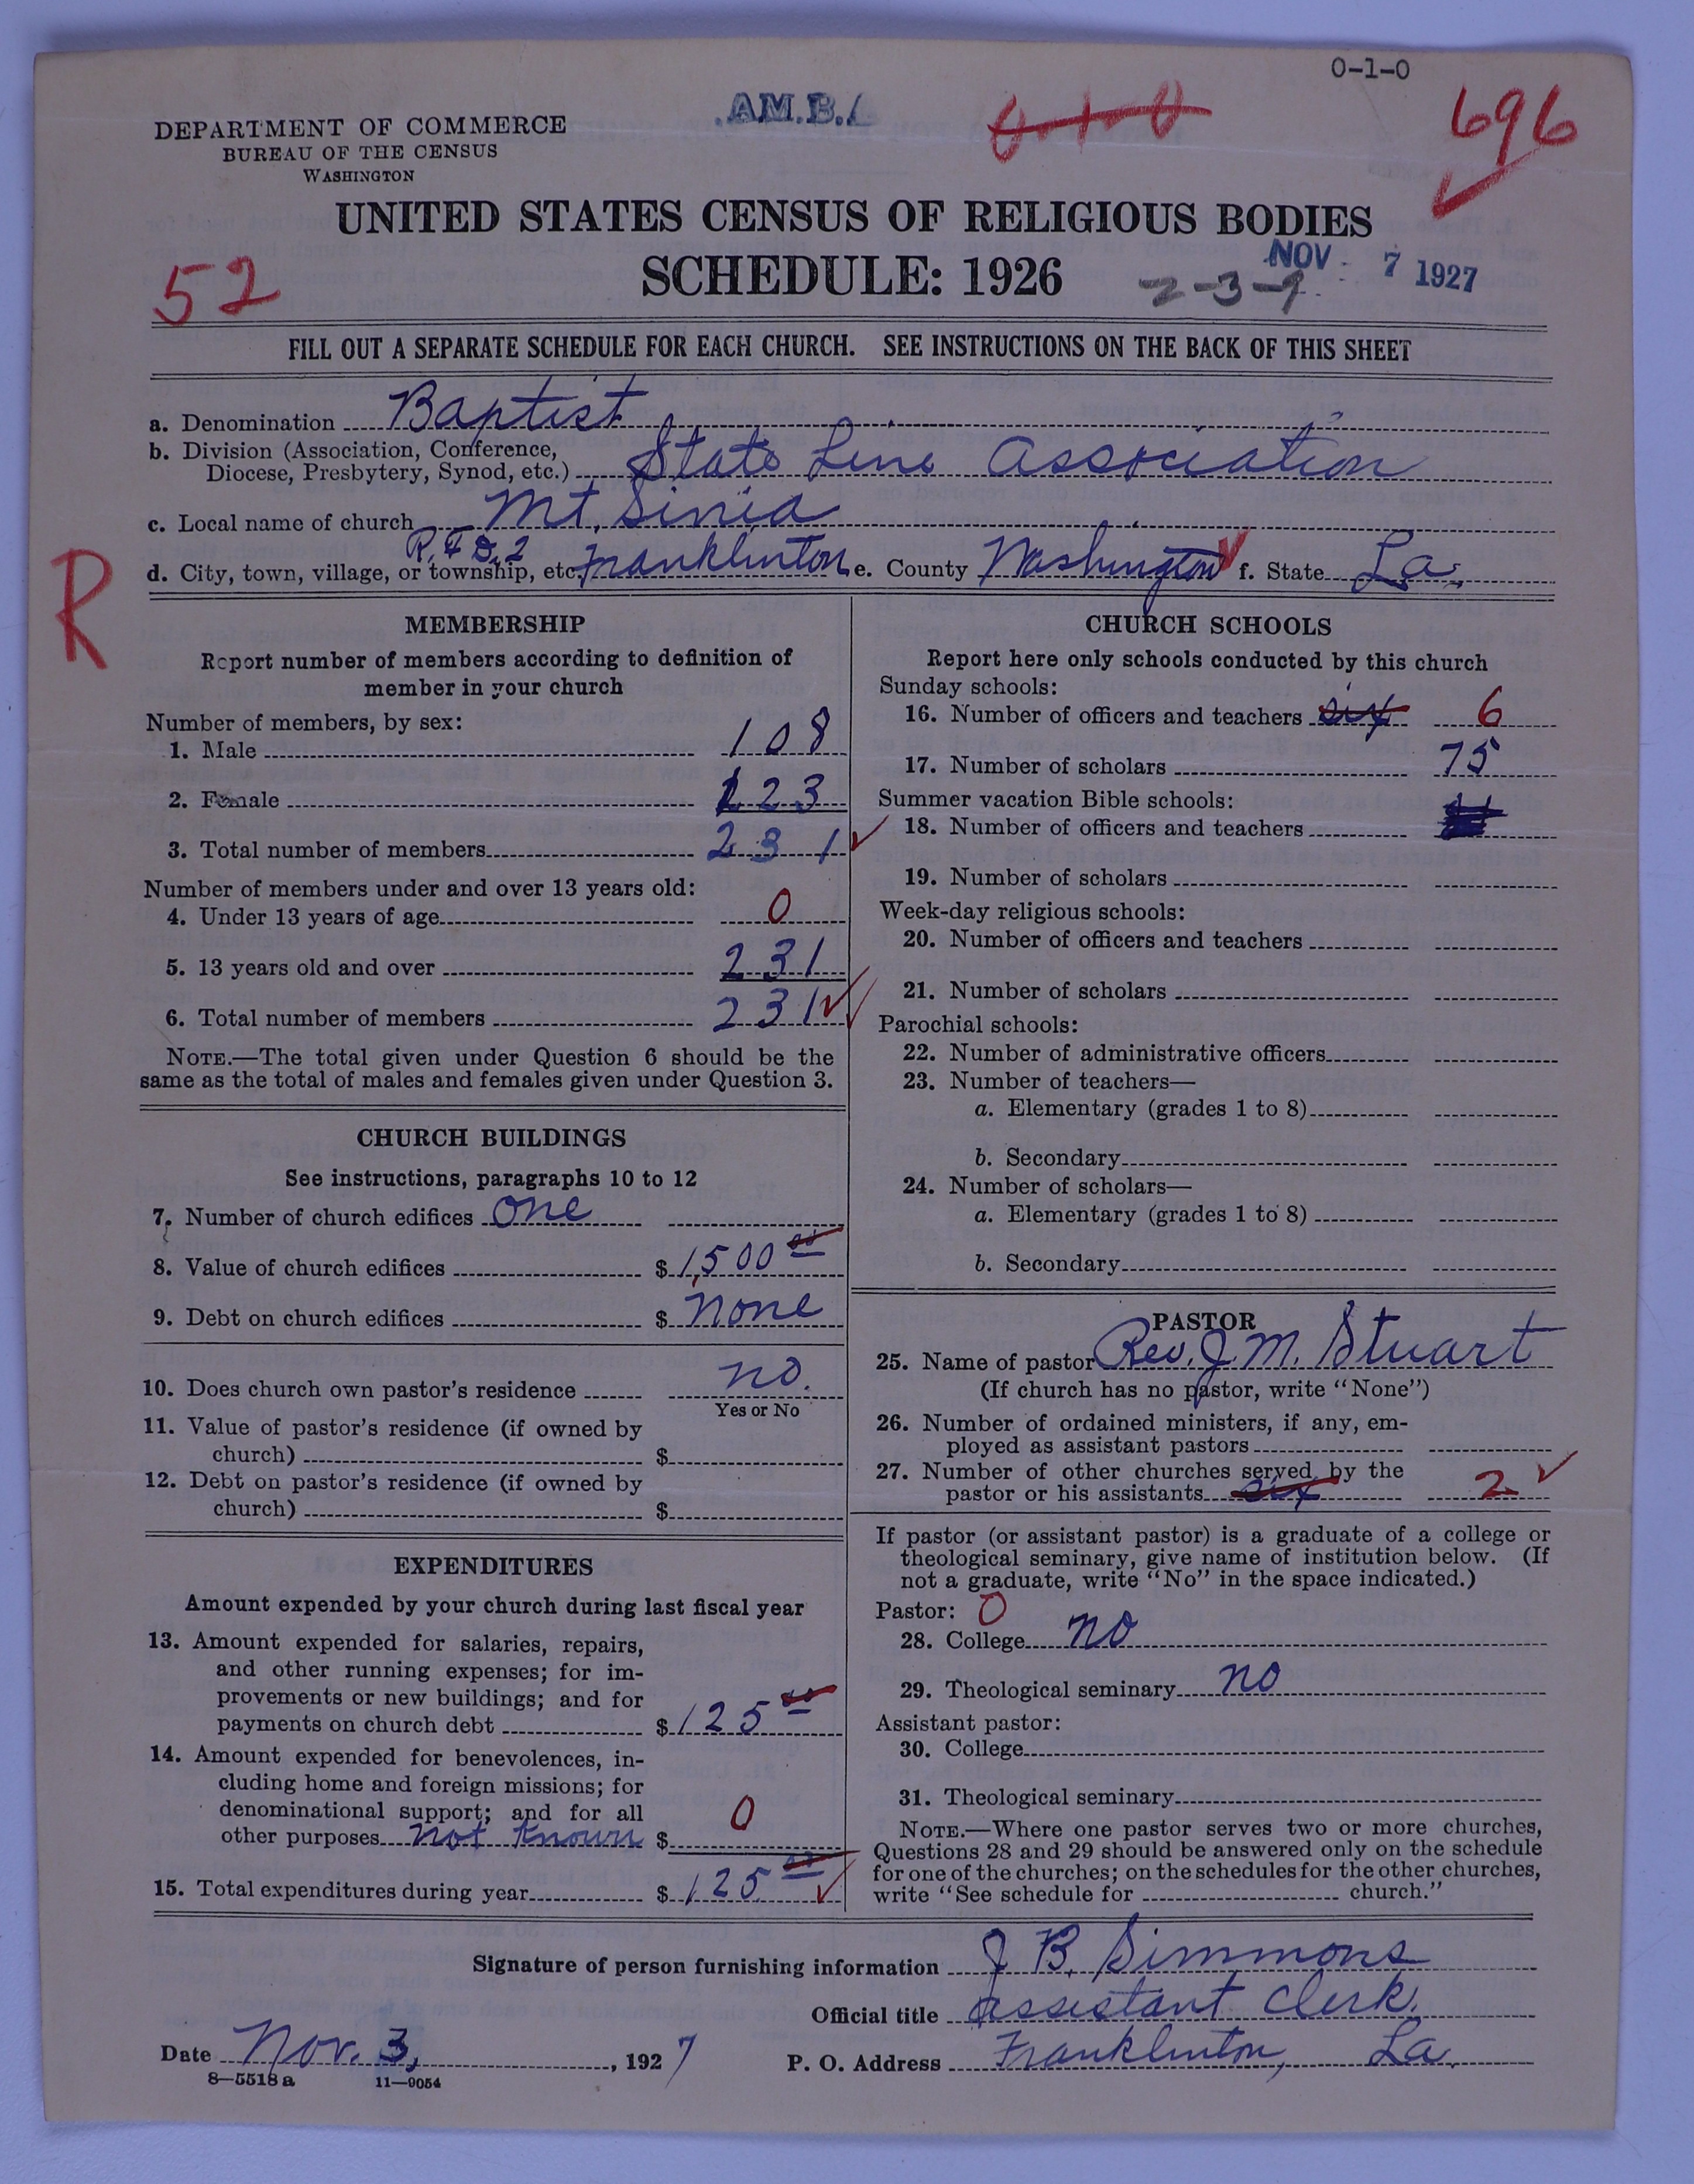 0-1-0
AM.B.
0-1-0
696
DEPARTMENT OF COMMERCE
BUREAU OF THE CENSUS
WASHINGTON
UNITED STATES CENSUS OF RELIGIOUS BODIES
SCHEDULE: 1926
NOV 7 1927
2-3-1
52
FILL OUT A SEPARATE SCHEDULE FOR EACH CHURCH. SEE INSTRUCTIONS ON THE BACK OF THIS SHEET
a. Denomination Baptist
b. Division (Association, Conference,
Diocese, Presbytery, Synod, etc.) State Line Association
c. Local name of church Mt. Sinia
R.F.D. 2
d. City, town, village, or township, etc. Franklinton e. County Washington f. State La.
R
MEMBERSHIP
Report number of members according to definition of
member in your church
Number of members, by sex:
1. Male 108
2. Female 123
3. Total number of members 231
Number of members under and over 13 years old:
4. Under 13 years of age 0
5. 13 years old and over 231
6. Total number of members 231
NOTE.—The total given under Question 6 should be the
same as the total of males and females given under Question 3.
CHURCH BUILDINGS
See instructions, paragraphs 10 to 12
7. Number of church edifices one
8. Value of church edifices $ 1,500 00
9. Debt on church edifices $ none
10. Does church own pastor's residence no.
Yes or No
11. Value of pastor's residence (if owned by
church) $
12. Debt on pastor's residence (if owned by
church) $
EXPENDITURES
Amount expended by your church during last fiscal year
13. Amount expended for salaries, repairs,
and other running expenses; for im-
provements or new buildings; and for
payments on church debt $ 125 00
14. Amount expended for benevolences, in-
cluding home and foreign missions; for
denominational support; and for all
other purposes not known $ 0
15. Total expenditures during year $ 125 00
CHURCH SCHOOLS
Report here only schools conducted by this church
Sunday schools:
16. Number of officers and teachers six 6
17. Number of scholars 75
Summer vacation Bible schools:
18. Number of officers and teachers
19. Number of scholars
Week-day religious schools:
20. Number of officers and teachers
21. Number of scholars
Parochial schools:
22. Number of administrative officers
23. Number of teachers—
a. Elementary (grades 1 to 8)
b. Secondary
24. Number of scholars—
a. Elementary (grades 1 to 8)
b. Secondary
PASTOR
25. Name of pastor Rev. J. M. Stuart
(If church has no pastor, write "None")
26. Number of ordained ministers, if any, em-
ployed as assistant pastors
27. Number of other churches served by the
pastor or his assistants six 2
If pastor (or assistant pastor) is a graduate of a college or
theological seminary, give name of institution below. (If
not a graduate, write "No" in the space indicated.)
Pastor: 0
28. College no
29. Theological seminary no
Assistant pastor:
30. College
31. Theological seminary
NOTE.—Where one pastor serves two or more churches,
Questions 28 and 29 should be answered only on the schedule
for one of the churches; on the schedules for the other churches,
write "See schedule for church."
Signature of person furnishing information J B. Simmons
Official title assistant clerk.
Date Nov. 3, 1927 P. O. Address Franklinton, La.
8—5518 a 11—9054